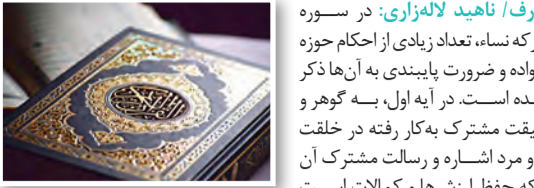 ناهید لاله‌زاری: در ســوره
که نساء، تعداد زیادی از احکام حوزه
و ضرورت پایبندی به آن‌ها ذکر
اســت. در آیه اول، بــه گوهر و
مشترک به‌کار رفته در خلقت
و مرد اشــاره و رسالت مشترک آن